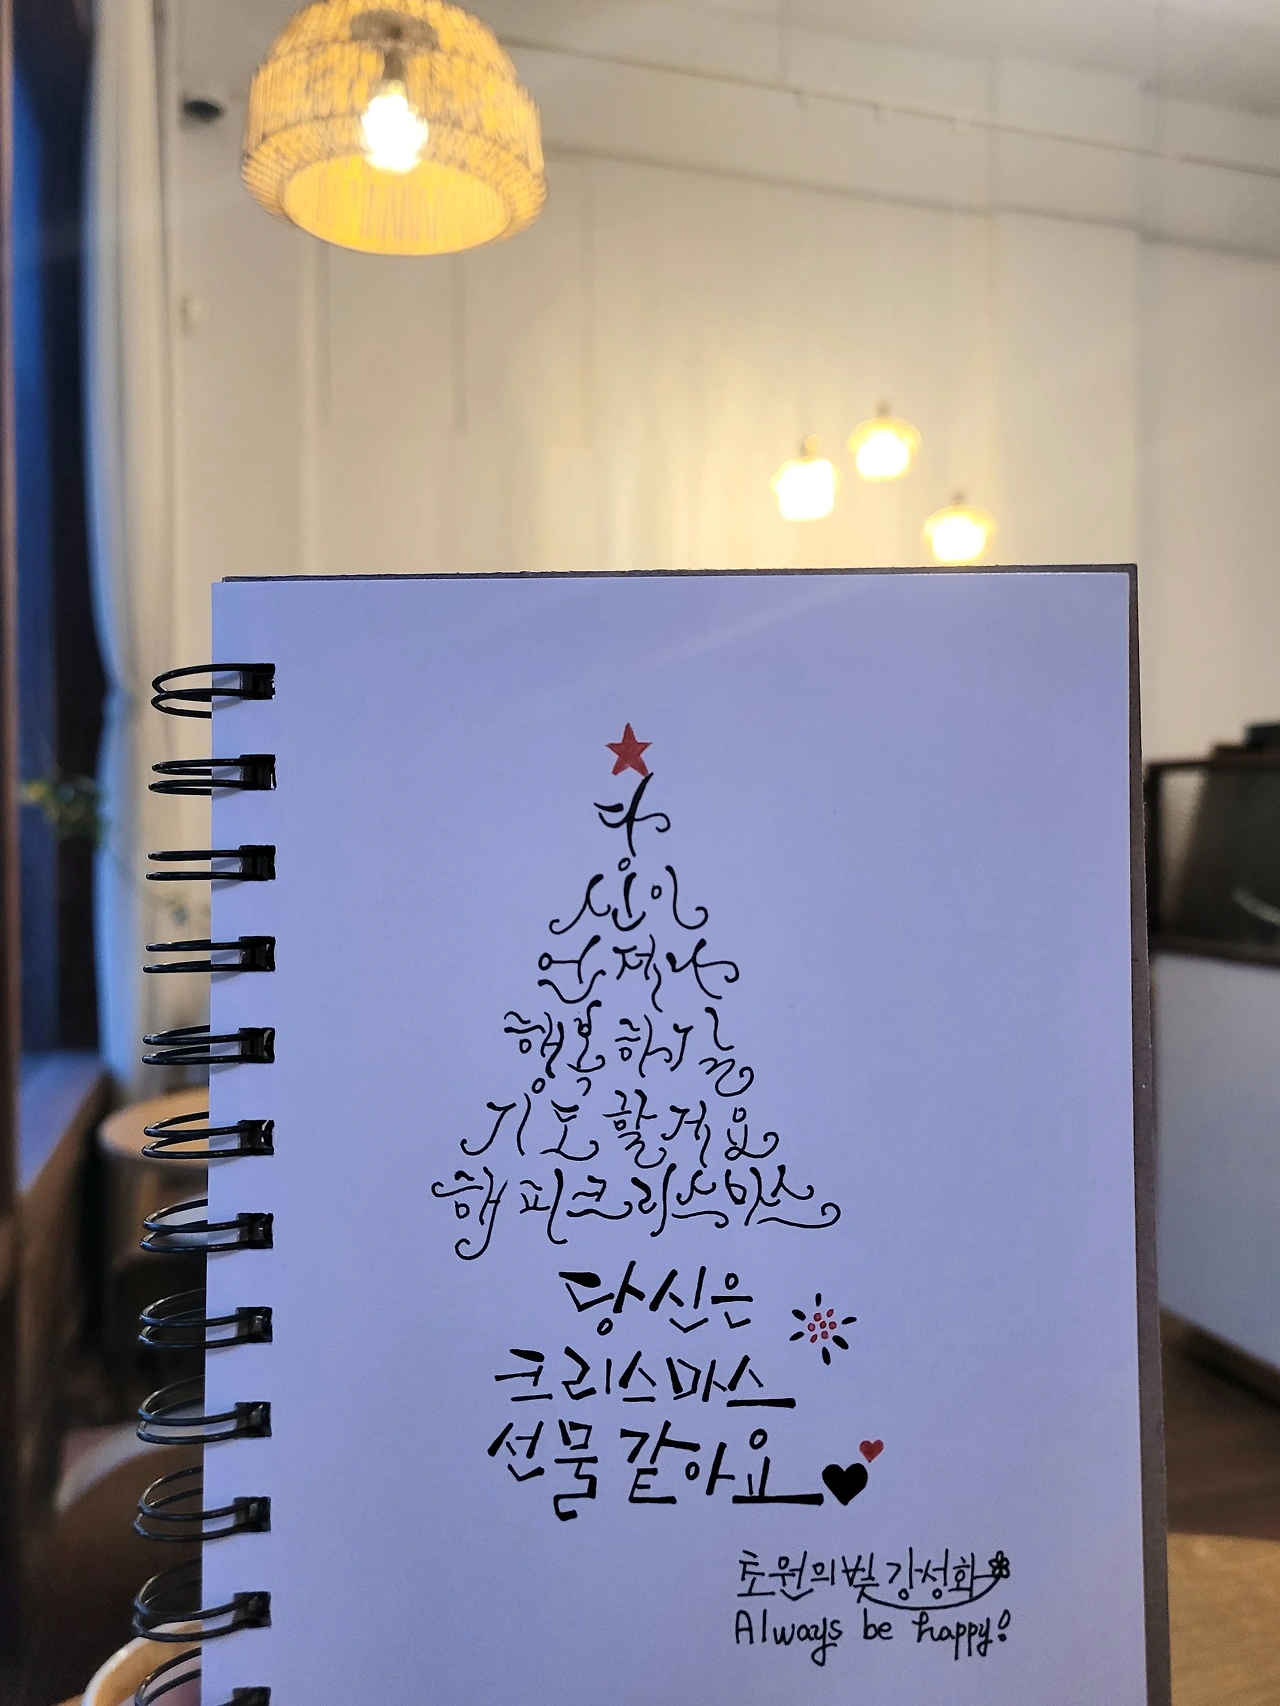 당
신이
언제나
행복하길
기도할게요
해피크리스마스
당신은
크리스마스
선물 같아요
토원의 빛 강성화
Always be happy!